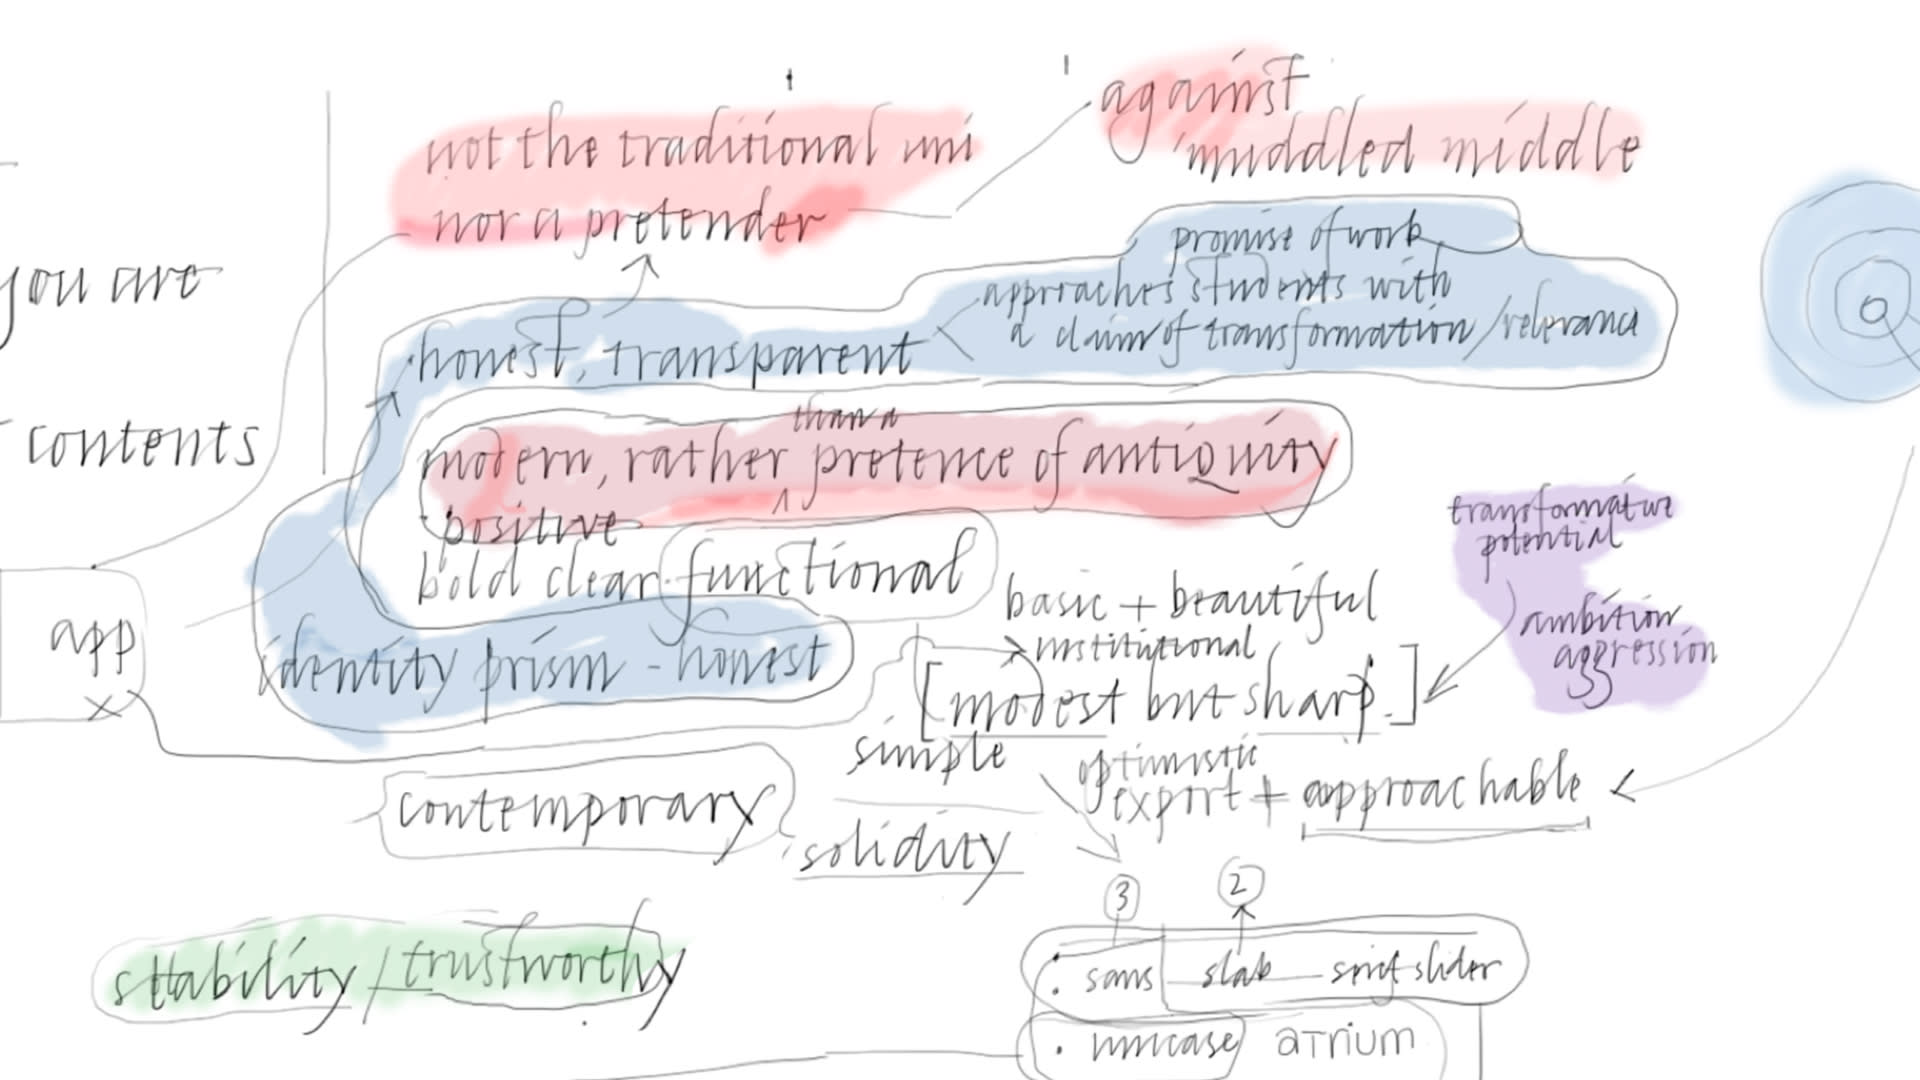 against
not the traditional uni
muddled middle
nor a pretender
promise of work
you are
approaches students with
a claim of transformation/relevance
honest, transparent
than a
contents
modern, rather pretence of antiquity
positive
bold clear functional
transformative
potential
basic + beautiful
ambition
app
institutional
aggression
identity prism - honest
[modest but sharp.]
x
simple
optimistic
contemporary
export + approachable
solidity
3
2
stability / trustworthy
· sans slab serif slider
· unicase atrium